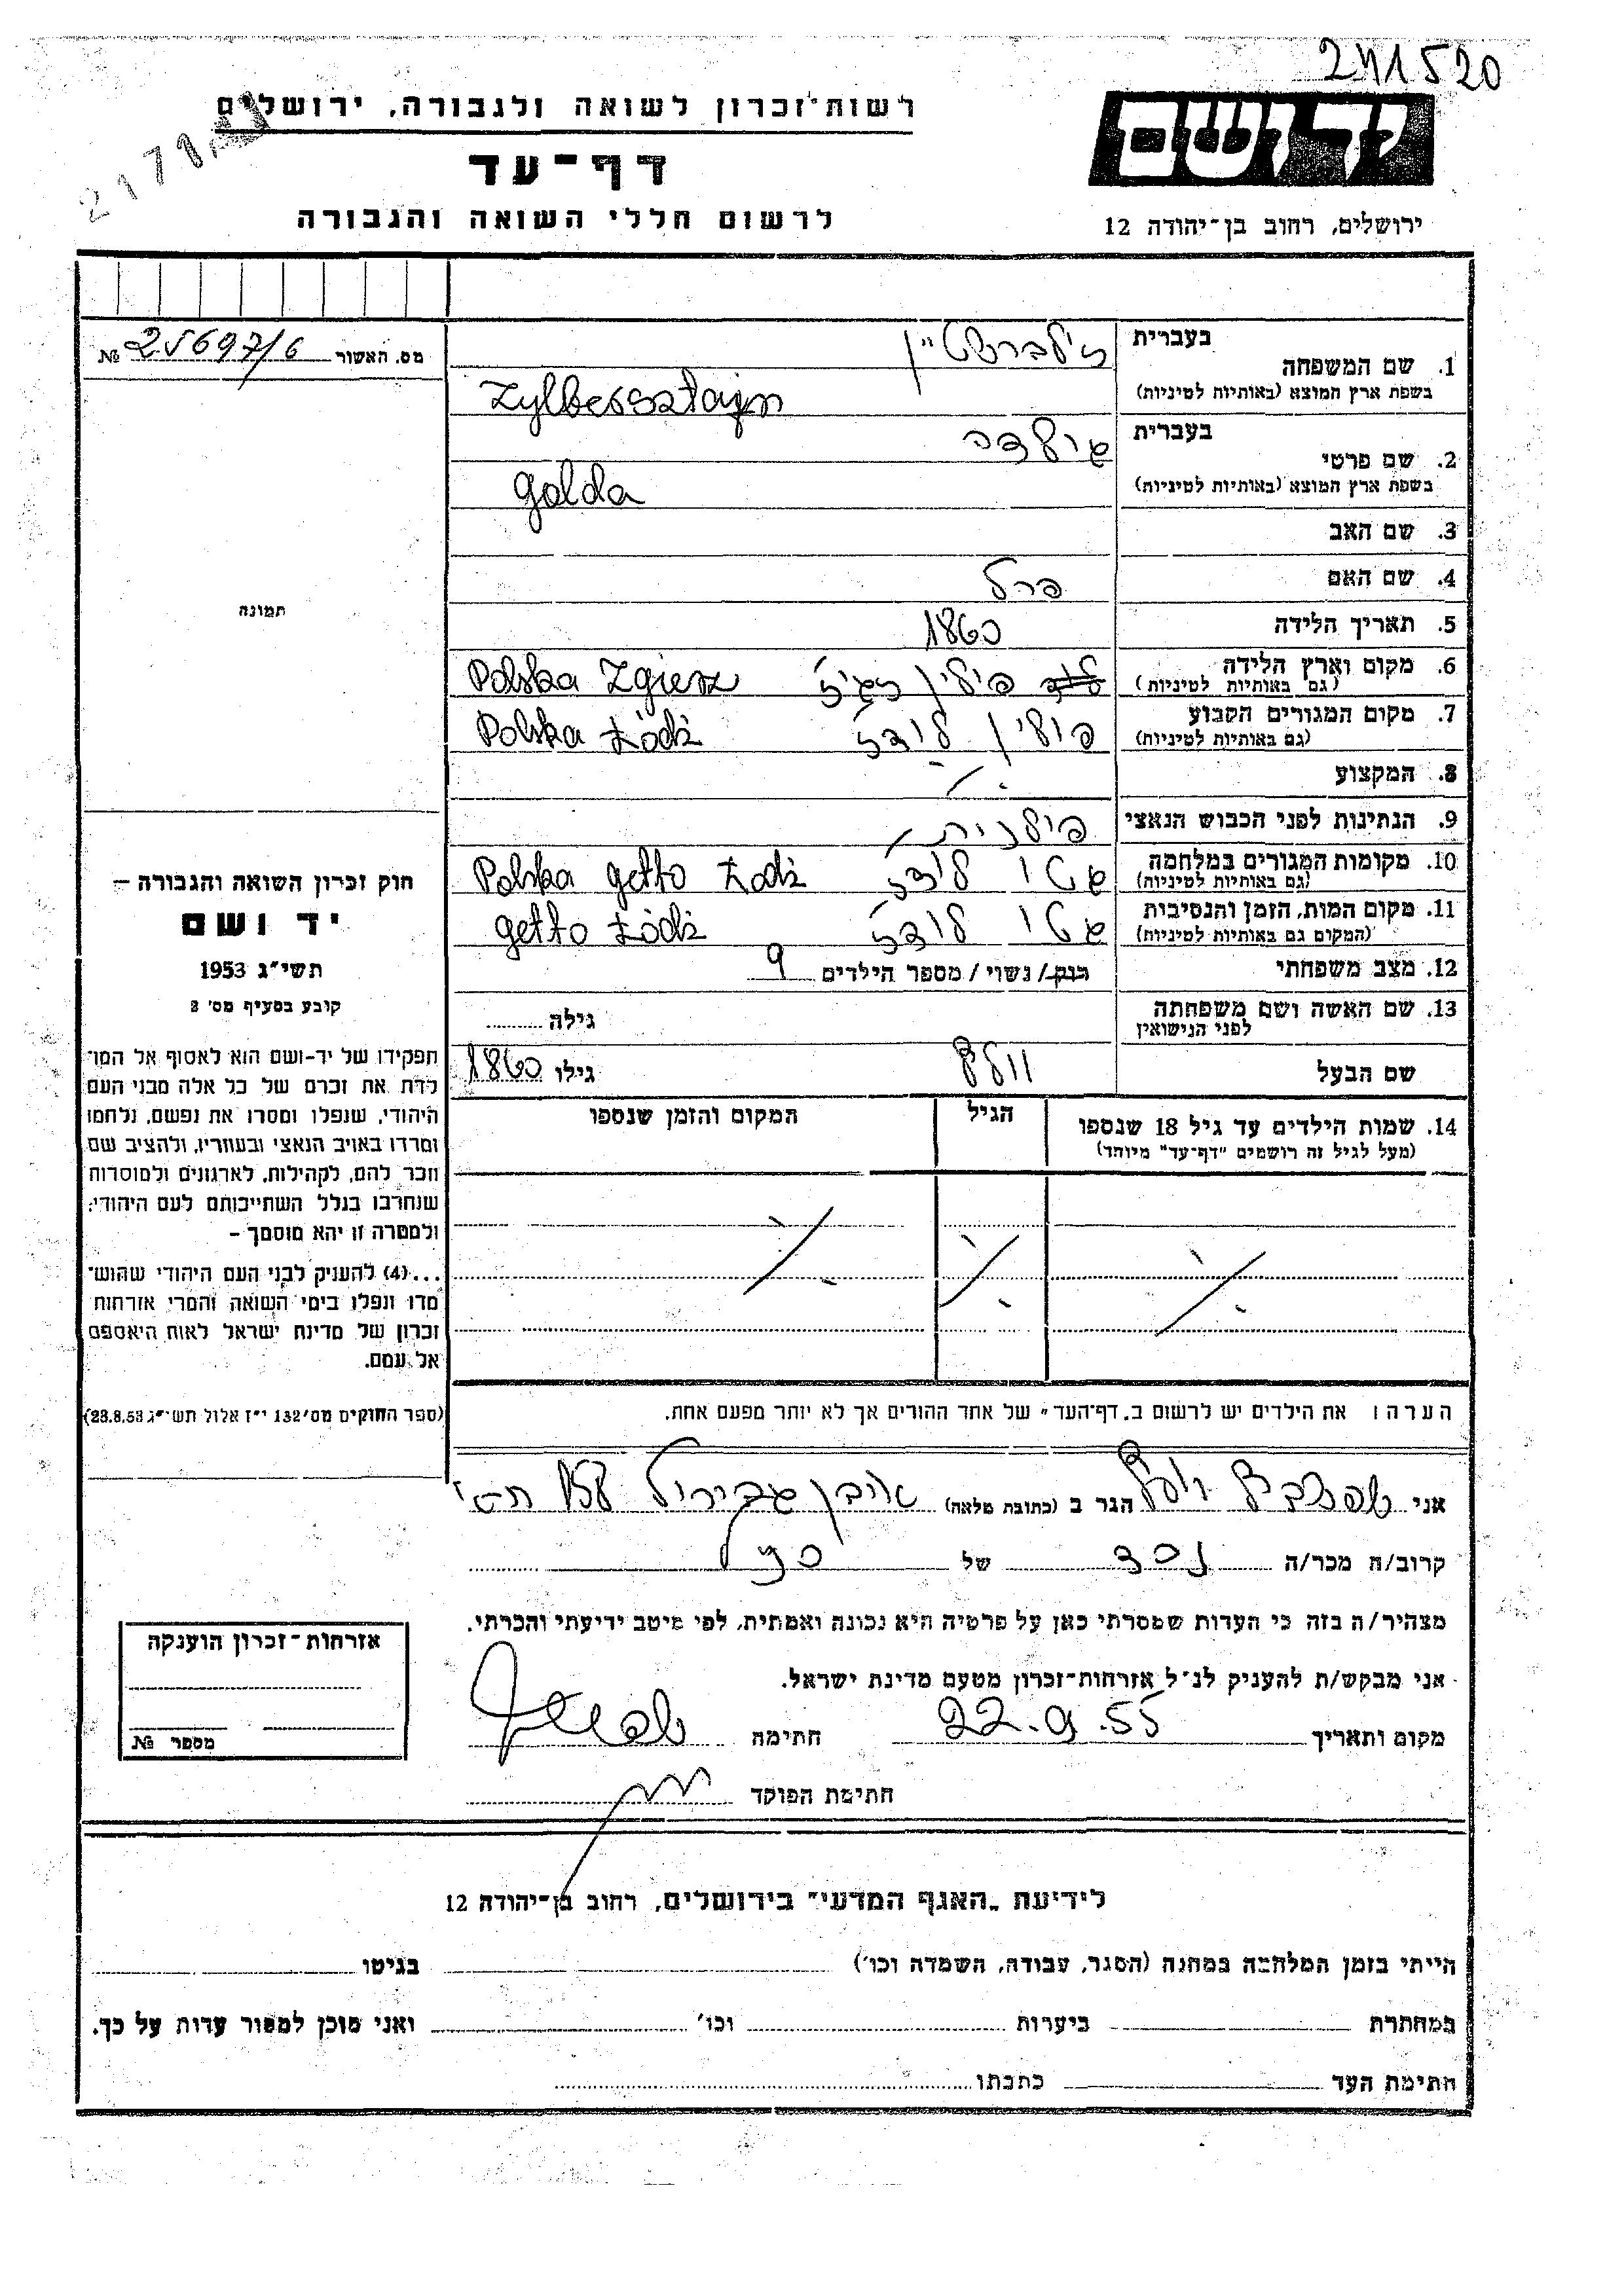 241520
רשות־זכרון לשואה ולגבורה, ירושלים
יד ושם
דף־עד
לרשום חללי השואה והגבורה
ירושלים, רחוב בן־יהודה 12
מס. האשור № 25697/6
בעברית זילברשטיין
1. שם המשפחה
בשפת ארץ המוצא (באותיות לטיניות) Zylbersztajn
בעברית גולדה
2. שם פרטי
בשפת ארץ המוצא (באותיות לטיניות) Golda
3. שם האב
4. שם האם פרל
5. תאריך הלידה 1860
6. מקום וארץ הלידה פולין זגיז' Polska Zgierz
(גם באותיות לטיניות)
7. מקום המגורים הקבוע פולין לודז' Polska Łódź
(גם באותיות לטיניות)
8. המקצוע ./.
9. הנתינות לפני הכבוש הנאצי פולנית
10. מקומות המגורים במלחמה גטו לודז' Polska getto Łodź
(גם באותיות לטיניות)
11. מקום המות, הזמן והנסיבות גטו לודז' getto Łódź
(המקום גם באותיות לטיניות)
12. מצב משפחתי רווק/ נשוי / מספר הילדים 9
13. שם האשה ושם משפחתה גילה
לפני הנישואין
שם הבעל וולף גילו 1860
14. שמות הילדים עד גיל 18 שנספו הגיל המקום והזמן שנספו
(מעל לגיל זה רושמים "דף־עד" מיוחד)
./. ./. ./.
הערה: את הילדים יש לרשום ב„דף־העד" של אחד ההורים אך לא יותר מפעם אחת.
תמונה
חוק זכרון השואה והגבורה —
יד ושם
תשי"ג 1953
קובע בסעיף מס' 2
תפקידו של יד-ושם הוא לאסוף אל המו־
לדת את זכרם של כל אלה מבני העם
היהודי, שנפלו ומסרו את נפשם, נלחמו
ומרדו באויב הנאצי ובעוזריו, ולהציב שם
וזכר להם, לקהילות, לארגונים ולמוסדות
שנחרבו בגלל השתייכותם לעם היהודי;
ולמטרה זו יהא מוסמך –
...(4) להעניק לבני העם היהודי שהוש־
מדו ונפלו בימי השואה והמרי אזרחות
זכרון של מדינת ישראל לאות היאספם
אל עמם.
(ספר החוקים מס' 132 י"ז אלול תשי"ג 23.8.53)
אני הגר ב (כתובת מלאה) אבן גבירול
קרוב/ה מכר/ה נכד של
מצהיר/ה בזה כי העדות שמסרתי כאן על פרטיה היא נכונה ואמתית, לפי מיטב ידיעתי והכרתי.
אני מבקש/ת להעניק לנ"ל אזרחות־זכרון מטעם מדינת ישראל.
מקום ותאריך 22.9.55 חתימה
חתימת הפוקד
אזרחות־זכרון הוענקה
מספר №
לידיעת „האגף המדעי" בירושלים, רחוב בן־יהודה 12
הייתי בזמן המלחמה במחנה (הסגר, עבודה, השמדה וכו') בגיטו
במחתרת ביערות וכו' ואני מוכן למסור עדות על כך.
חתימת העד כתבתו